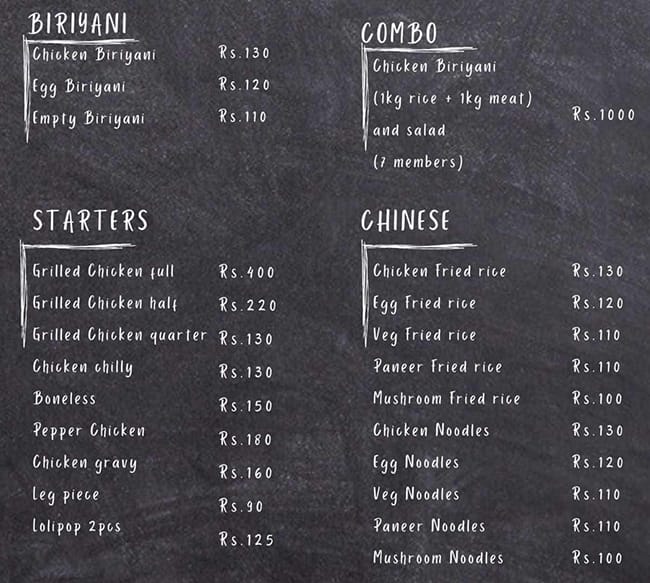 BIRIYANI
Chicken Biriyani Rs.130
Egg Biriyani Rs.120
Empty Biriyani Rs.110
COMBO
Chicken Biriyani
(1kg rice + 1kg meat) Rs.1000
and salad
(7 members)
STARTERS
Grilled Chicken full Rs.400
Grilled Chicken half Rs.220
Grilled Chicken quarter Rs.130
Chicken chilly Rs.130
Boneless Rs.150
Pepper Chicken Rs.180
Chicken gravy Rs.160
Leg piece Rs.90
Lolipop 2pcs Rs.125
CHINESE
Chicken Fried rice Rs.130
Egg Fried rice Rs.120
Veg Fried rice Rs.110
Paneer Fried rice Rs.110
Mushroom Fried rice Rs.100
Chicken Noodles Rs.130
Egg Noodles Rs.120
Veg Noodles Rs.110
Paneer Noodles Rs.110
Mushroom Noodles Rs.100